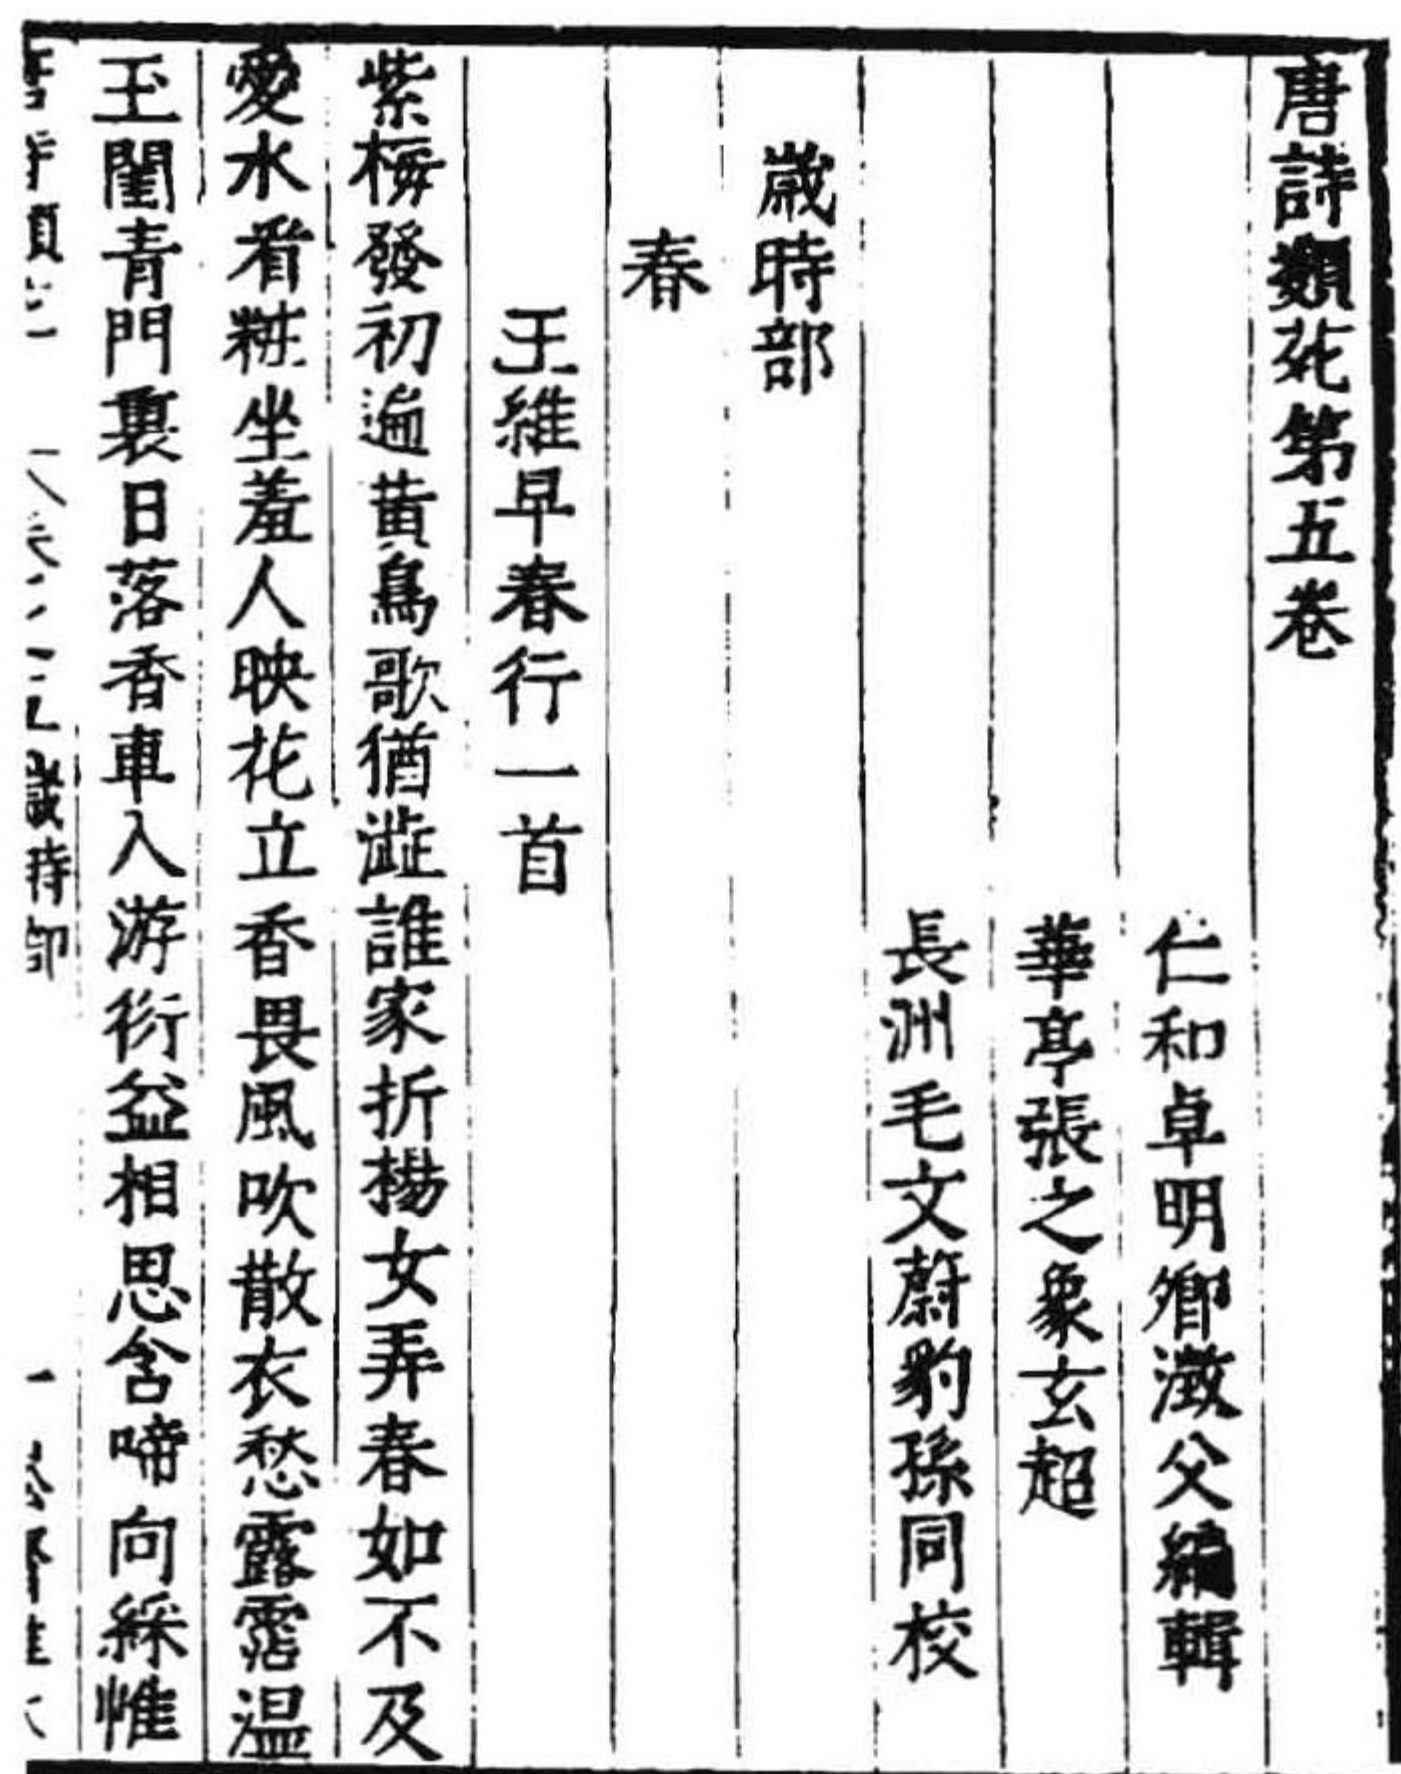 唐詩類苑第五卷
仁和卓明卿澂父編輯
華亭張之象玄超
長洲毛文蔚豹孫同校
歲時部
春
王維早春行一首
紫梅發初遍黄鳥歌猶澁誰家折楊女弄春如不及
愛水看粧坐羞人映花立香畏風吹散衣愁露霑温
玉閨青門裏日落香車入游衍益相思含啼向綵帷
歲時部